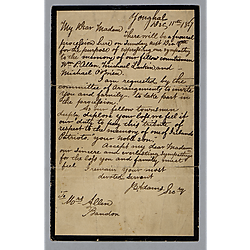 Youghal
Dec. 11th 1867
My Dear Madam, There will be a funeral
procession here on Sunday next
for the purpose of expressing our sympathy
to the memory of our fellow countrymen
Wm P. Allen, Michael Larkin
Michael O'Brien.
I am requested by the
committee of arrangements to invite
you and family to take part in
the procession.
As our fellow townsmen
deeply deplore your loss we feel it
our duty to pay this tribute of
respect to the memory of one of Irelands
Patriots, your noble son.
Accept my dear Madam
our sincere and everlasting sympathy
for the loss you and family must
feel
I remain your most
devoted servant
Adams Secy
To
Mrs Allen
Bandon